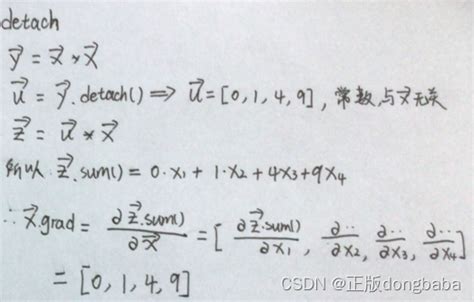 detach
y⃗ = x⃗ * x⃗
u⃗ = y⃗.detach() ⟹ u⃗ = [0, 1, 4, 9], 常数,与x⃗无关
z⃗ = u⃗ * x⃗
所以 z⃗.sum() = 0·x₁ + 1·x₂ + 4x₃ + 9x₄
∴ x⃗.grad = ∂z⃗.sum() / ∂x⃗ = [ ∂z⃗.sum() / ∂x₁, ∂·· / ∂x₂, ∂·· / ∂x₃, ∂·· / ∂x₄ ]
= [0, 1, 4, 9]
CSDN @正版dongbaba